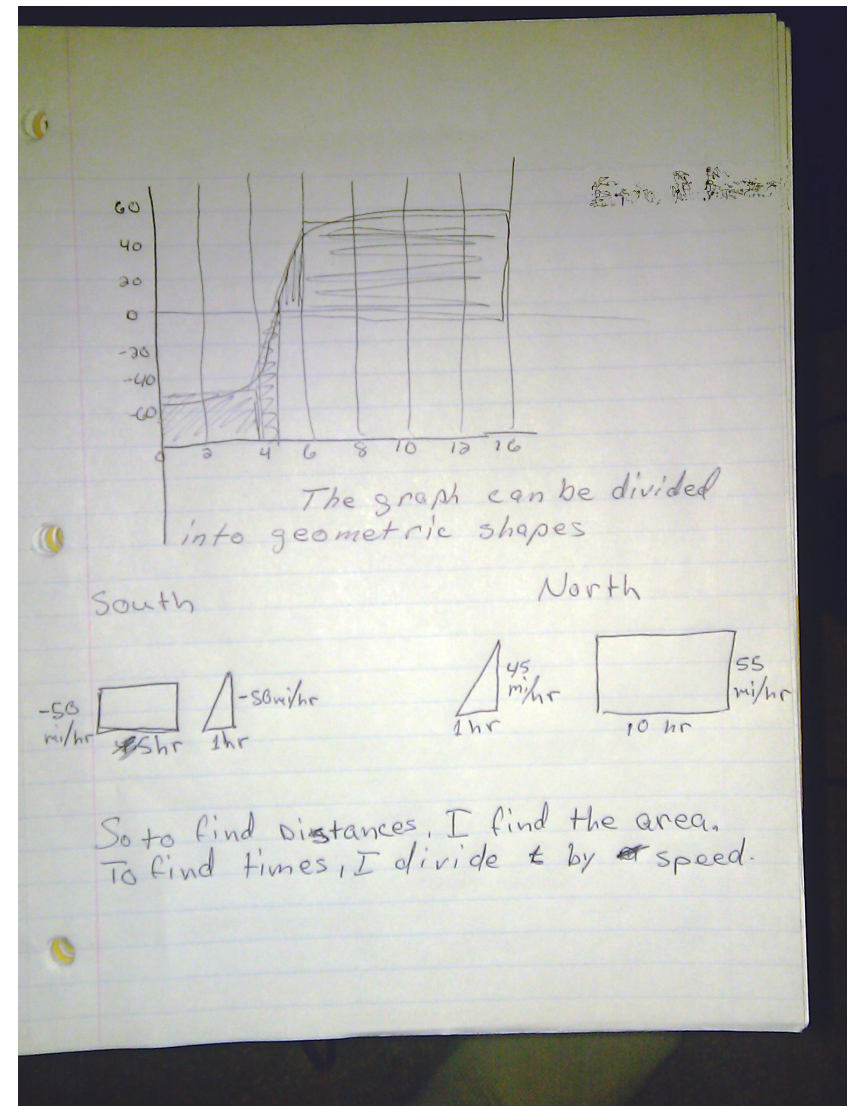 60
40
20
0
-20
-40
-60
0 2 4 6 8 10 12 16
The graph can be divided
into geometric shapes
South
North
-50 mi/hr
5hr
-50mi/hr
1hr
45 mi/hr
1hr
55 mi/hr
10 hr
So to find Distances, I find the area.
To find times, I divide t by speed.